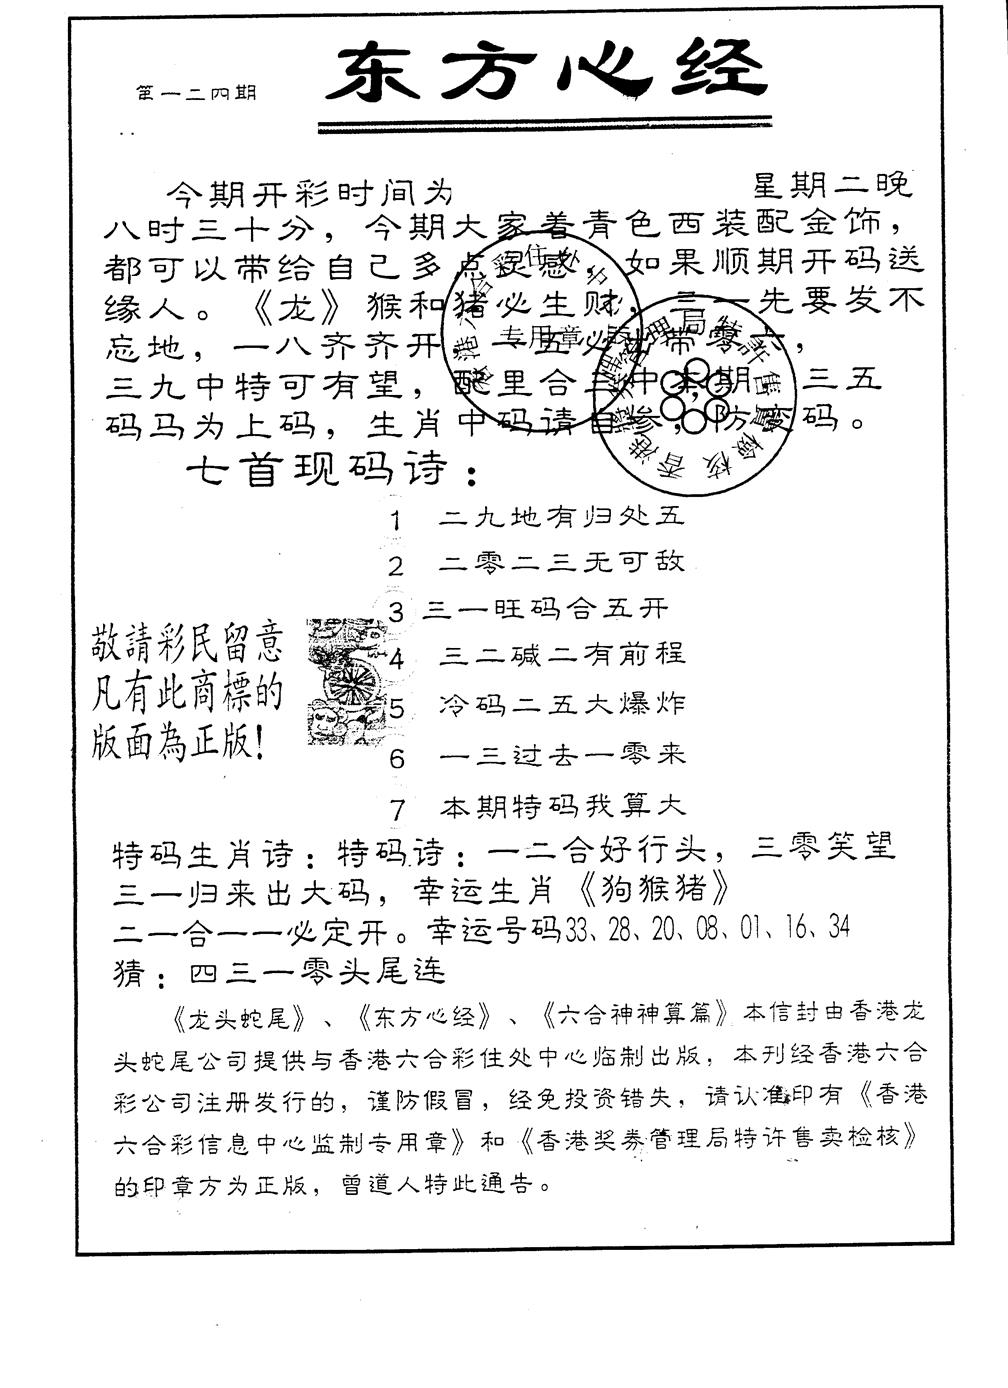 东方心经
第一二四期
今期开彩时间为 星期二晚
八时三十分，今期大家着青色西装配金饰，
都可以带给自己多点灵感，如果顺期开码送
缘人。《龙》猴和猪必生财，三一先要发不
忘地，一八齐齐开 一五必出带零六，
三九中特可有望，配里合三中本期，三五
码马为上码，生肖中码请自参，防变码。
七首现码诗：
1 二九地有归处五
2 二零二三无可敌
3 三一旺码合五开
4 三二碱二有前程
5 冷码二五大爆炸
6 一三过去一零来
7 本期特码我算大
敬請彩民留意
凡有此商標的
版面為正版！
特码生肖诗：特码诗：一二合好行头，三零笑望
三一归来出大码，幸运生肖《狗猴猪》
二一合一一必定开。幸运号码33、28、20、08、01、16、34
猜：四三一零头尾连
《龙头蛇尾》、《东方心经》、《六合神神算篇》本信封由香港龙
头蛇尾公司提供与香港六合彩住处中心临制出版，本刊经香港六合
彩公司注册发行的，谨防假冒，经免投资错失，请认准印有《香港
六合彩信息中心监制专用章》和《香港奖券管理局特许售卖检核》
的印章方为正版，曾道人特此通告。
专用章
香港獎券管理局特許售賣檢核